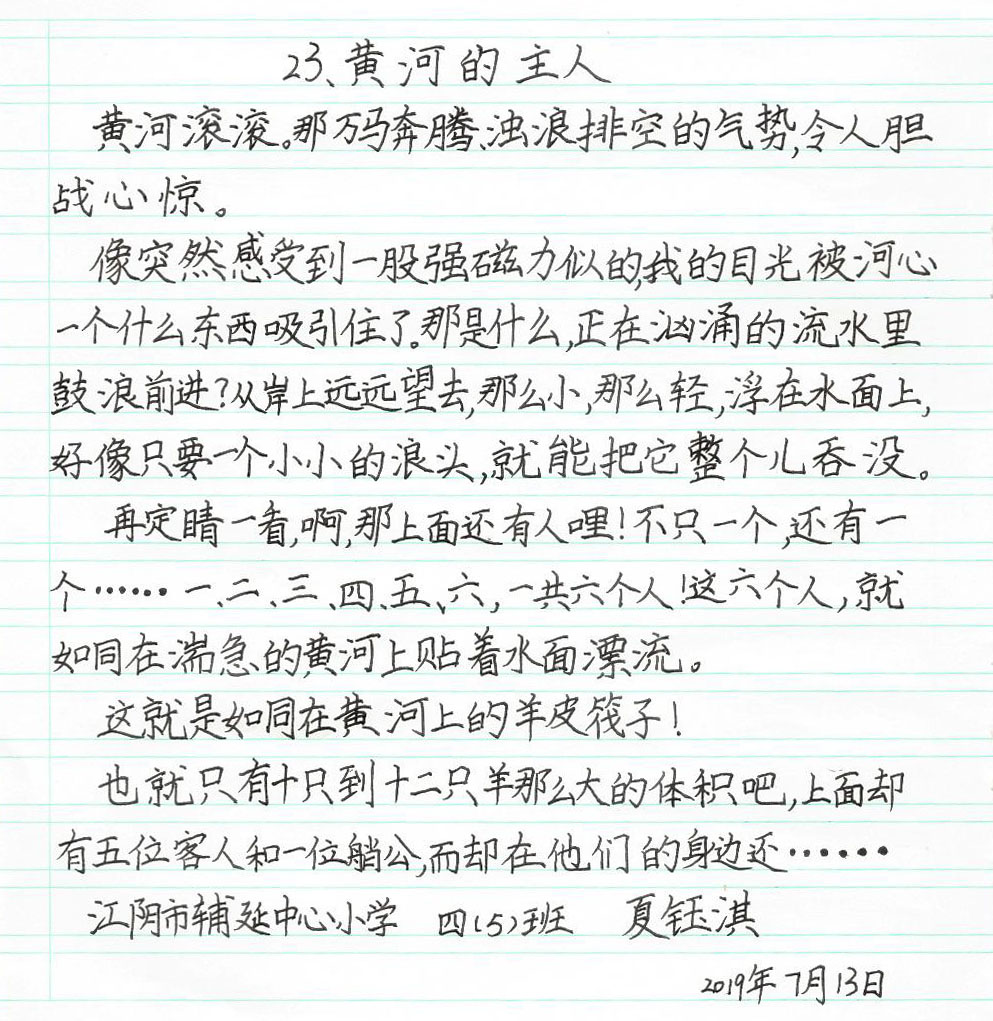 23、黄河的主人
黄河滚滚。那万马奔腾、浊浪排空的气势,令人胆
战心惊。
像突然感受到一股强磁力似的,我的目光被河心
一个什么东西吸引住了。那是什么,正在汹涌的流水里
鼓浪前进?从岸上远远望去,那么小,那么轻,浮在水面上,
好像只要一个小小的浪头,就能把它整个儿吞没。
再定睛一看,啊,那上面还有人哩!不只一个,还有一
个……一、二、三、四、五、六,一共六个人!这六个人,就
如同在湍急的黄河上贴着水面漂流。
这就是如同在黄河上的羊皮筏子!
也就只有十只到十二只羊那么大的体积吧,上面却
有五位客人和一位艄公,而却在他们的身边还……
江阴市辅延中心小学 四(5)班 夏钰淇
2019年7月13日